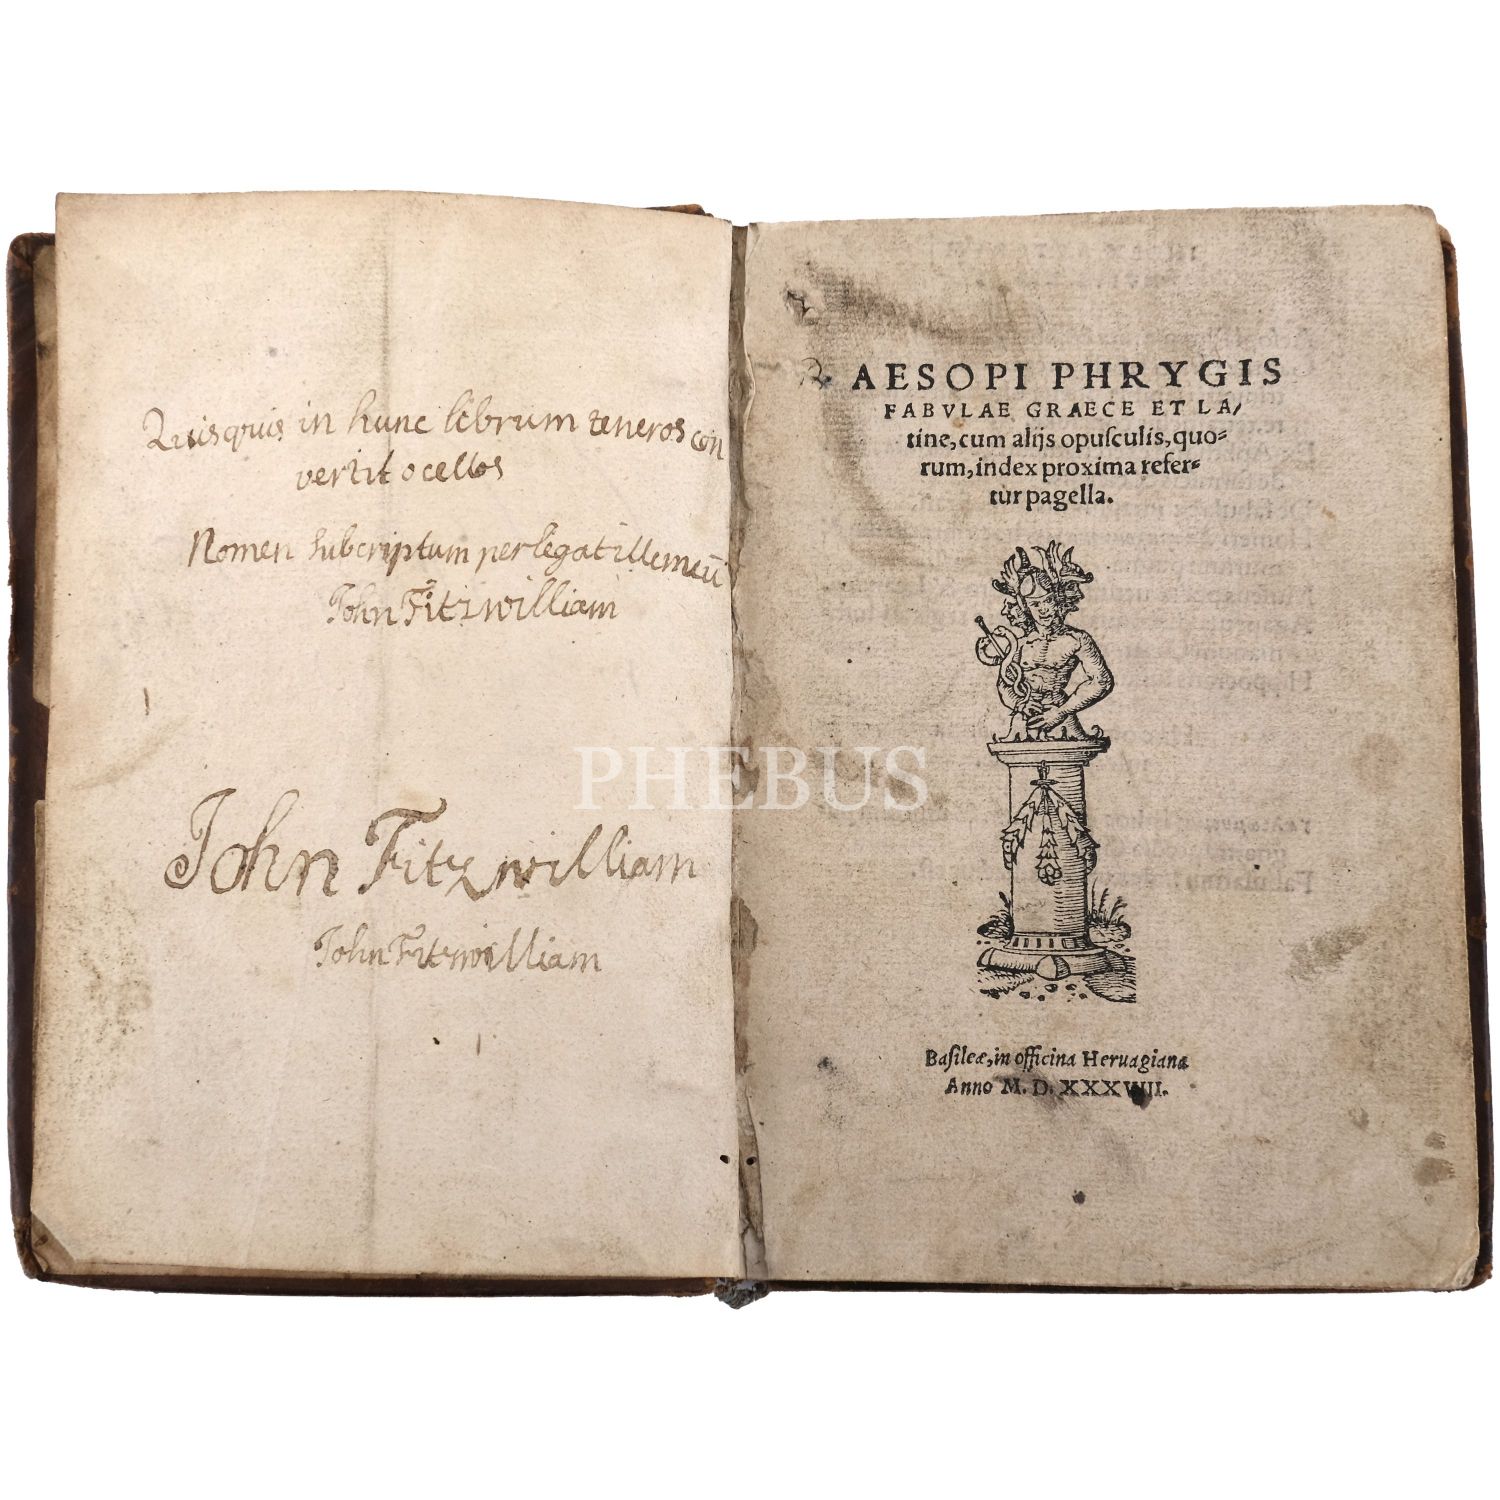 Quisquis in hunc librum teneros con
vertit ocellos
Nomen subcriptum perlegat ille meū
John Fitzwilliam
John Fitzwilliam
John Fitzwilliam
AESOPI PHRYGIS
FABVLAE GRAECE ET LA/
tine, cum alijs opuſculis, quo-
rum, index proxima refer-
tur pagella.
PHEBUS
Baſileæ, in officina Heruagiana
Anno M. D. XXXVIII.